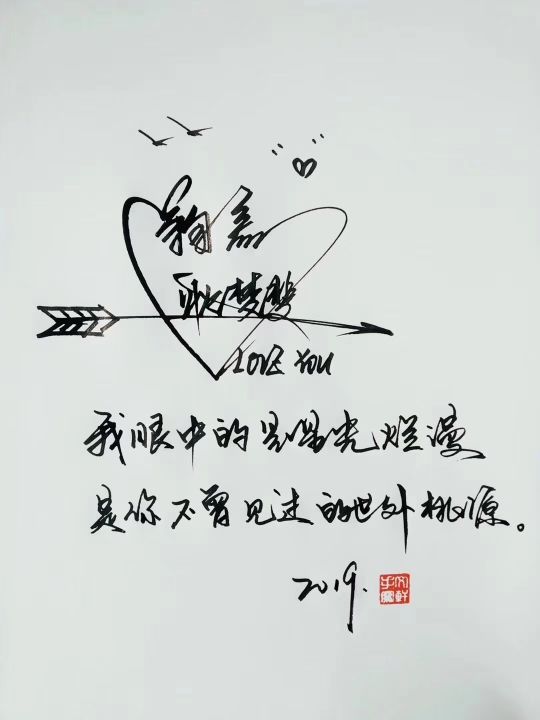 LOVE YOU
我眼中的是光烂漫
是你不曾见过的世外桃源。
2019.